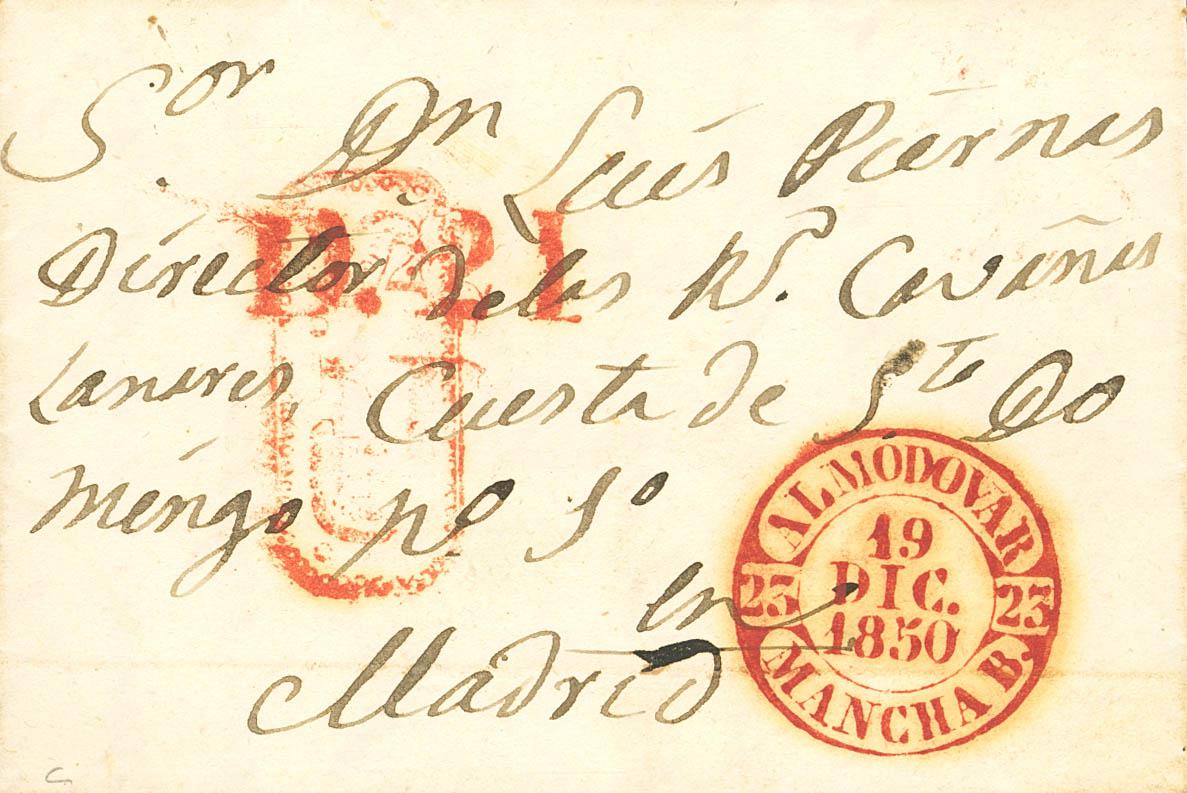 Sor Dn Luis Piernas
Director de las Rs. Cavañas
Laneres, Cuesta de Sto Do
mingo po So
en
Madrid
ALMODOVAR
23 19 23
DIC.
1850
MANCHA B.